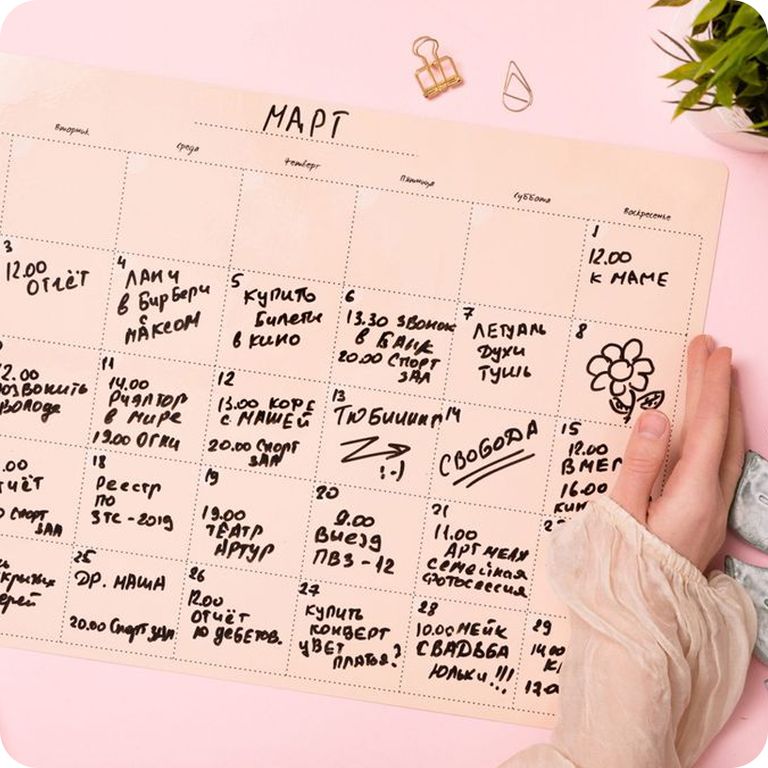 МАРТ
Вторник
Среда
Четверг
Пятница
Суббота
Воскресенье
1
12.00
К МАМЕ
3
12.00
ОТЧЁТ
4
ЛАНЧ
в Бирбери
с
МАКСОМ
5
КУПИТЬ
Билеты
в кино
6
13.30 ЗВОНОК
в БАНК
20.00 СПОРТ
ЗАЛ
7
ЛЕТУАЛЬ
Духи
ТУШЬ
8
11
14.00
Риэлтор
в Мире
19.00 ОГНИ
12
13.00 КОФЕ
С МАШЕЙ
20.00 Спорт
ЗАЛ
13
ТЮБИНИНГ
:-)
14
СВОБОДА
15
12.00
16.00
18
Реестр
ПО
ЗТС-2019
19
19.00
ТЕАТР
АРТУР
20
9.00
Выезд
ПВЗ-12
21
11.00
АРТ МЕЛХ
СЕМЕЙНАЯ
ФОТОСЕССИЯ
25
ДР. МАША
20.00 Спорт ЗАЛ
26
12.00
ОТЧЁТ
Ю ДЕБЕТОВ.
27
КУПИТЬ
КОНВЕРТ
ЦВЕТ
ПЛАТЬЯ?
28
10.00 МЕЙК
СВАДЬБА
ЮЛЬКИ!!!
29